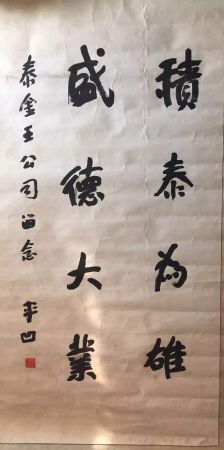 積泰為雄
盛德大業
泰金王公司留念
平凹